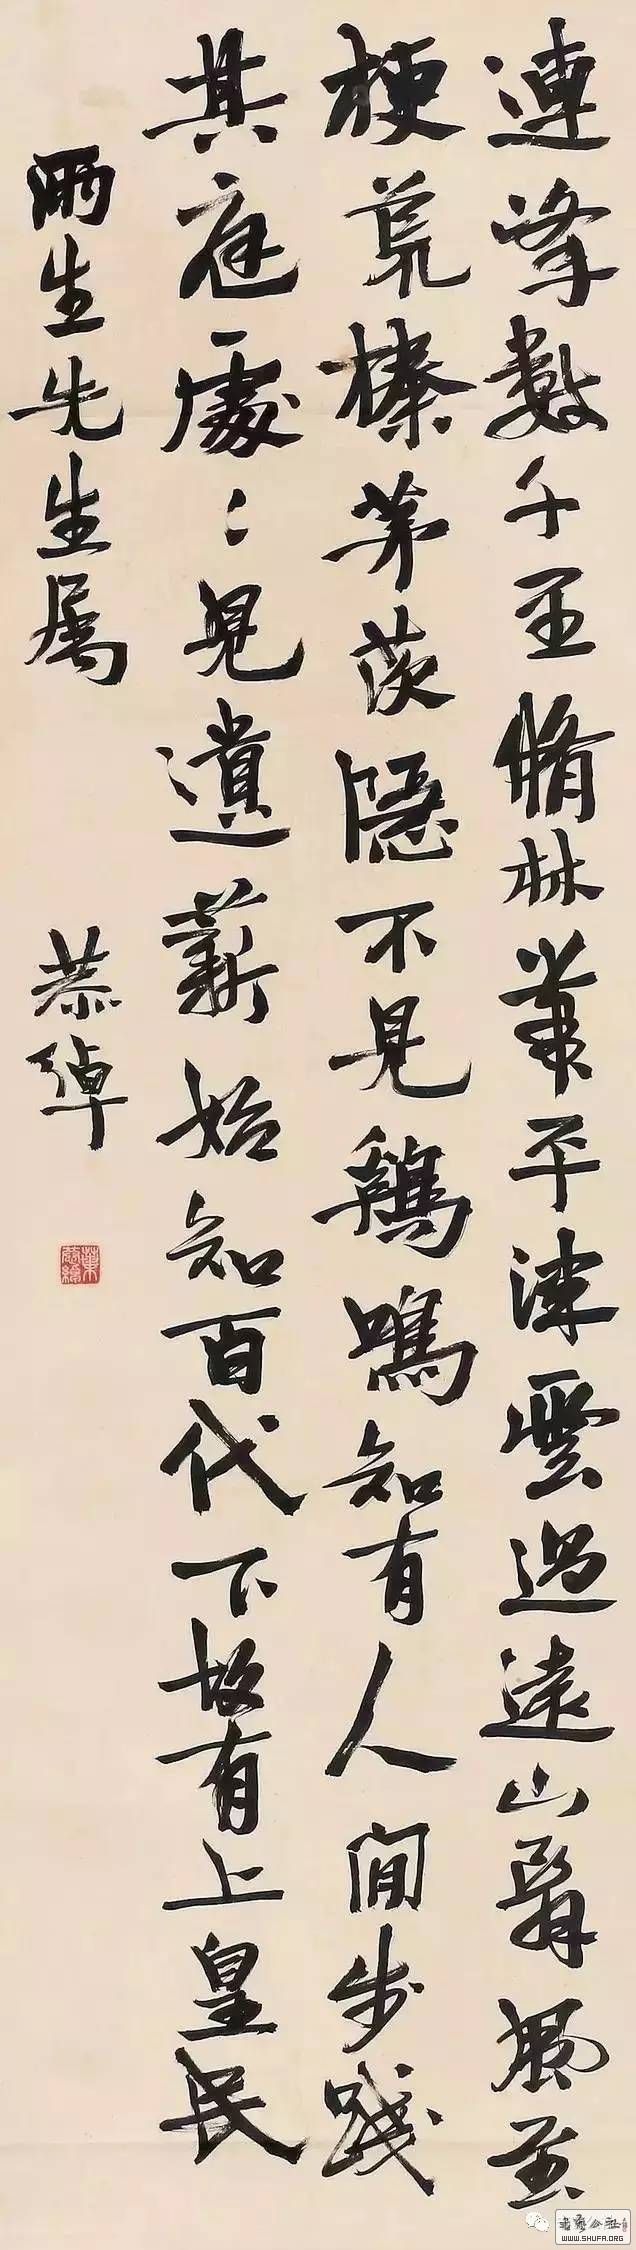 連峯數千里脩林帶平津雲過遠山翳風至
梗荒榛茅茨隱不見鷄鳴知有人閒步踐
其庭處〻見遺薪始知百代下故有上皇民
雨生先生属
恭綽
葉恭綽
WWW.SHUFA.ORG